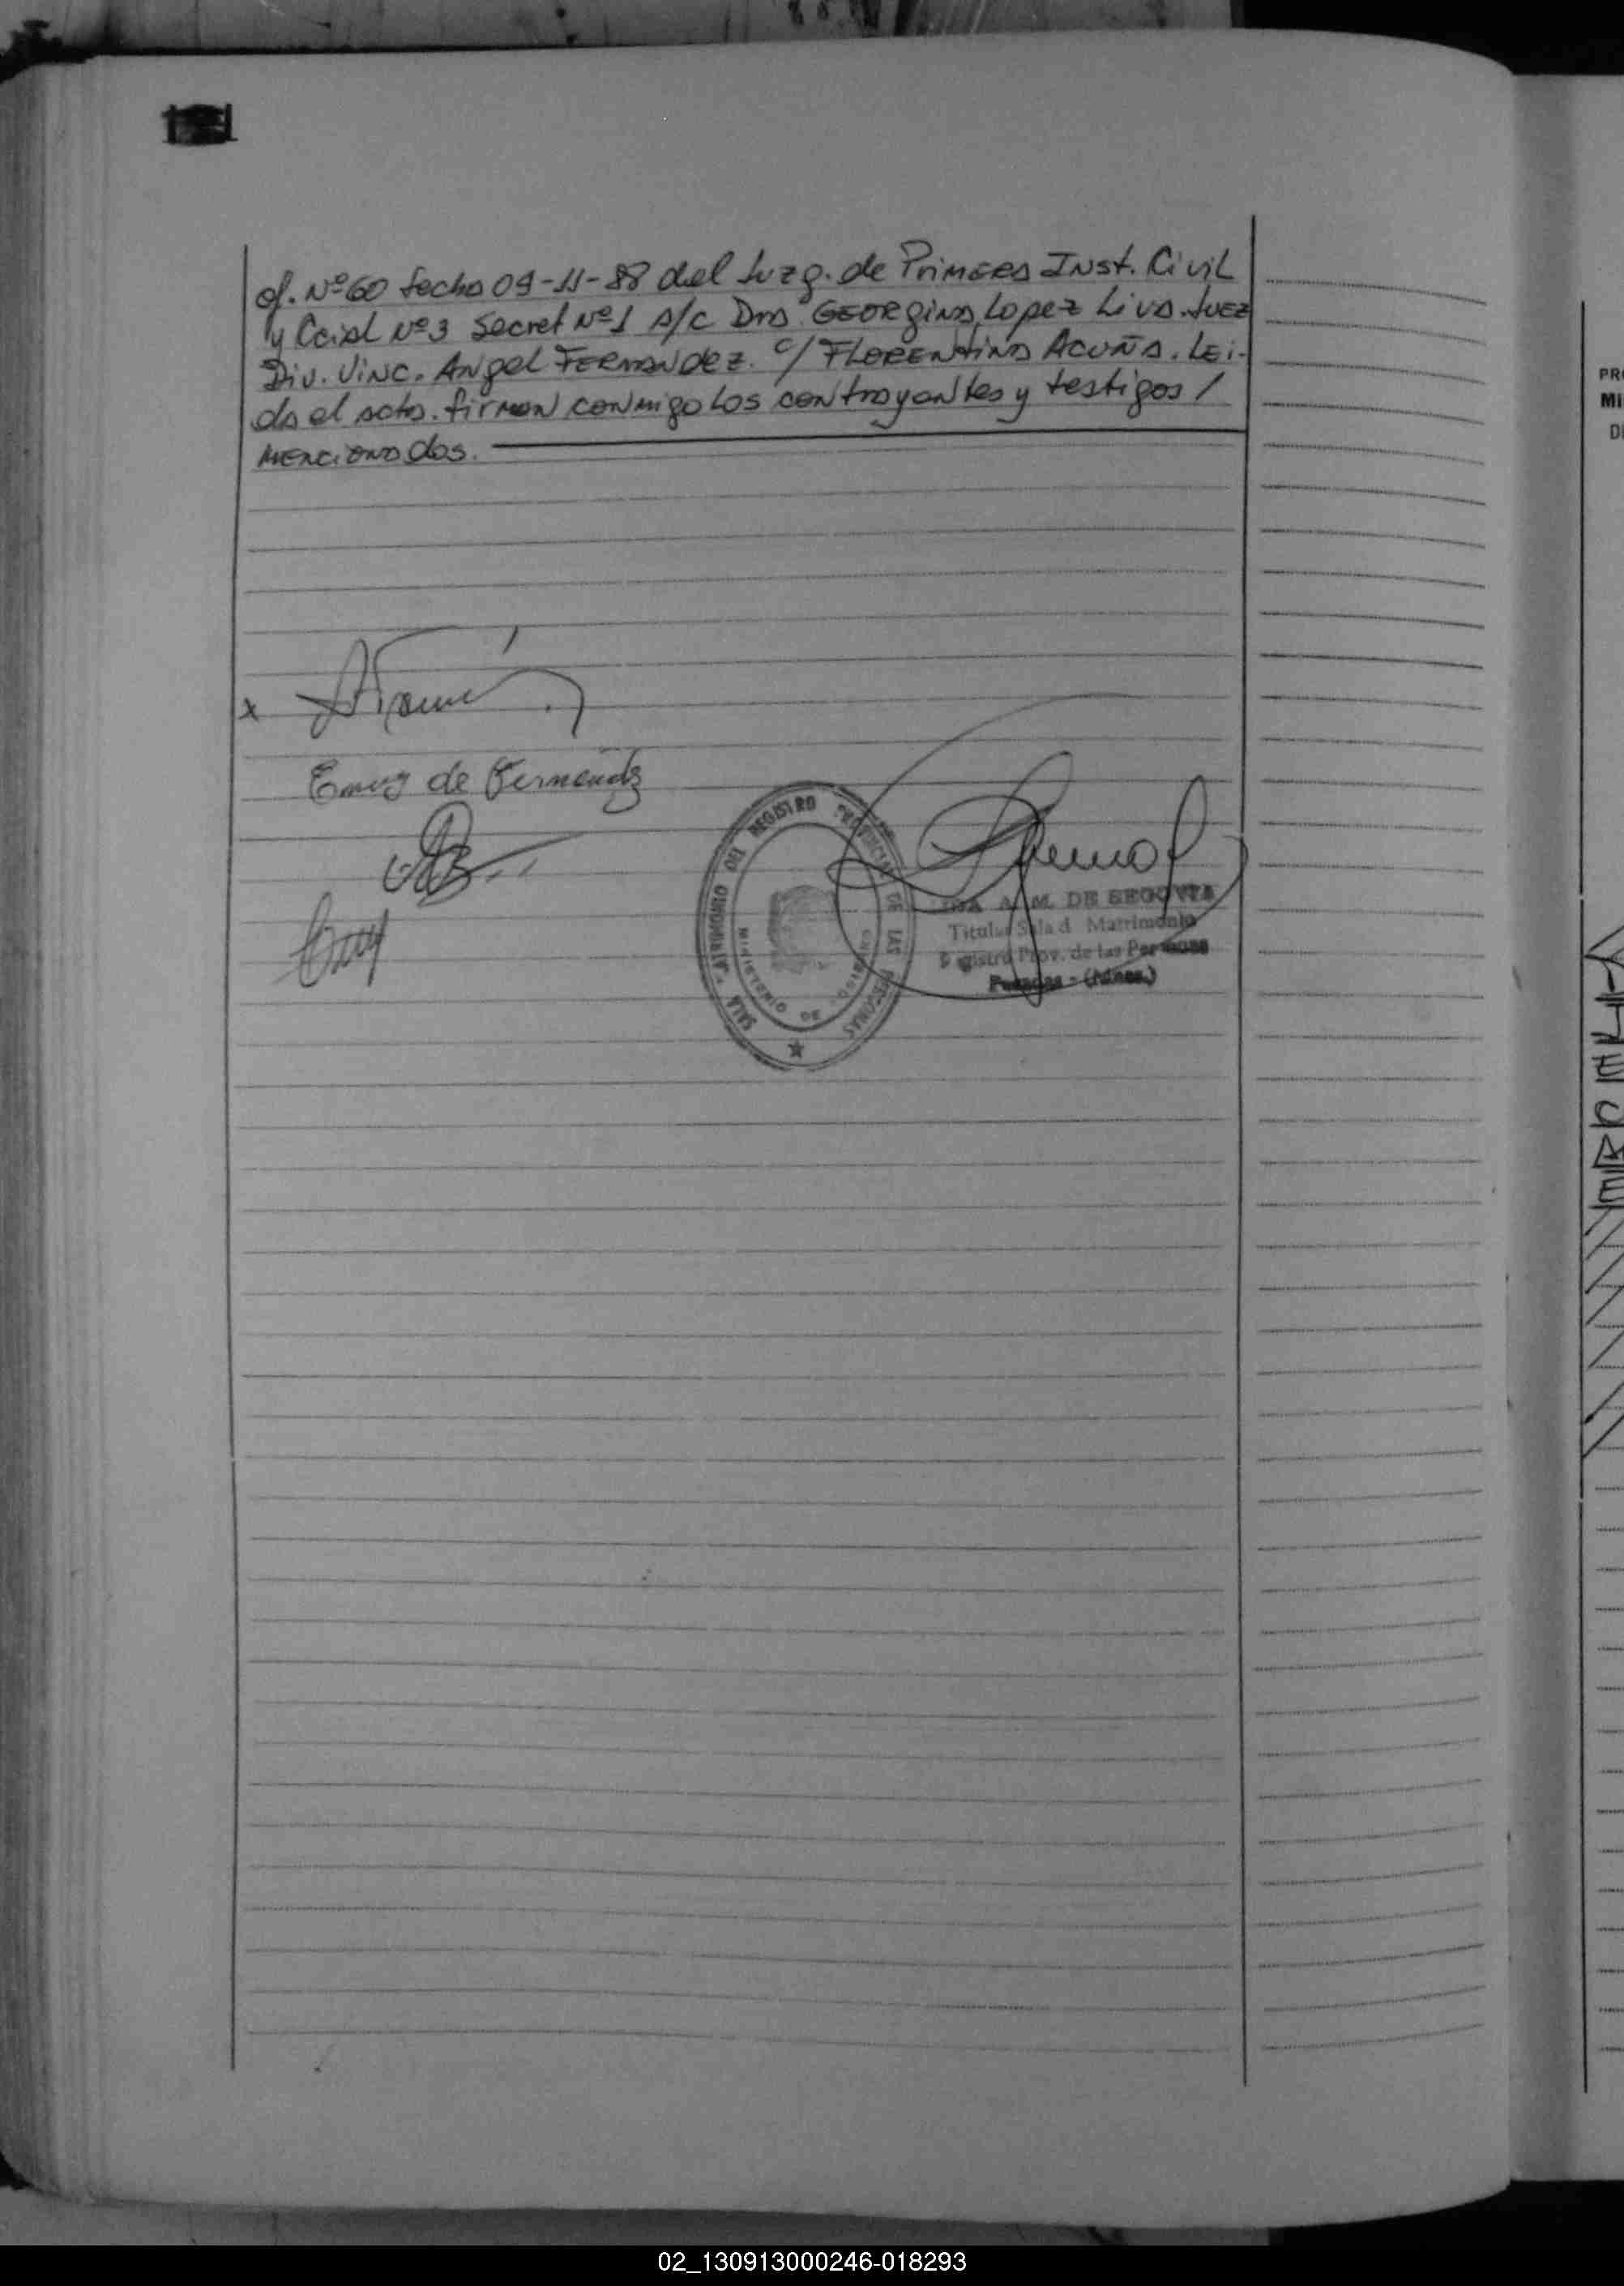 of. Nº 60 fecha 09-11-88 del Juzg. de Primera Inst. Civil
y Ccial Nº 3 Secret Nº 1 A/C Dra. GEORgina Lopez Liva. JUEZ
Div. Vinc. Angel FERNANDEZ. C/ FLORENtina ACUÑA. LEi-
da el acta. firman conmigo los contrayentes y testigos /
MENCionados.
x
de Fernandez
SALA MATRIMONIO DEL REGISTRO PROVINCIAL DE LAS PERSONAS
MINISTERIO DE GOBIERNO
A. M. DE SEGOVIA
Titular Sala d Matrimonio
Registro Prov. de las Personas
Posadas - (Mnes.)
PR
MI
D
02_130913000246-018293